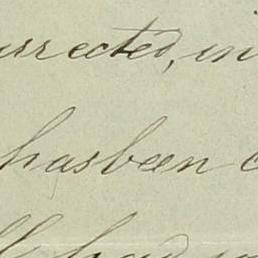 urrected, in
has been c